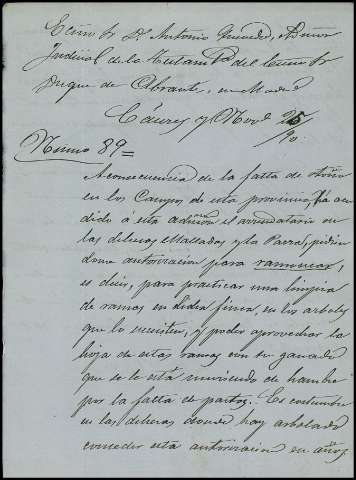 Ecmo Sr Dn Antonio Quevedo, Admor
Judicial de la Testamª del Ecmo Sr
Duque de Abrantes, en Madrid
Cáceres y Novb 25/90
Numo 89=
A consecuencia de la falta de Otoño
en los Campos de esta provincia, ha acu
dido á esta admon el arrendatario de
las dehesas Malladas y la Parra, pidien
dome autorizacion para ramonear,
es decir, para practicar una limpia
de ramas en dicha finca, en los arboles
que lo necesiten, y poder aprovechar la
hoja de estas ramas con su ganado
que se le está muriendo de hambre
por la falta de pastos. Es costumbre
en las dehesas donde hay arbolado
conceder esta autorizacion en años